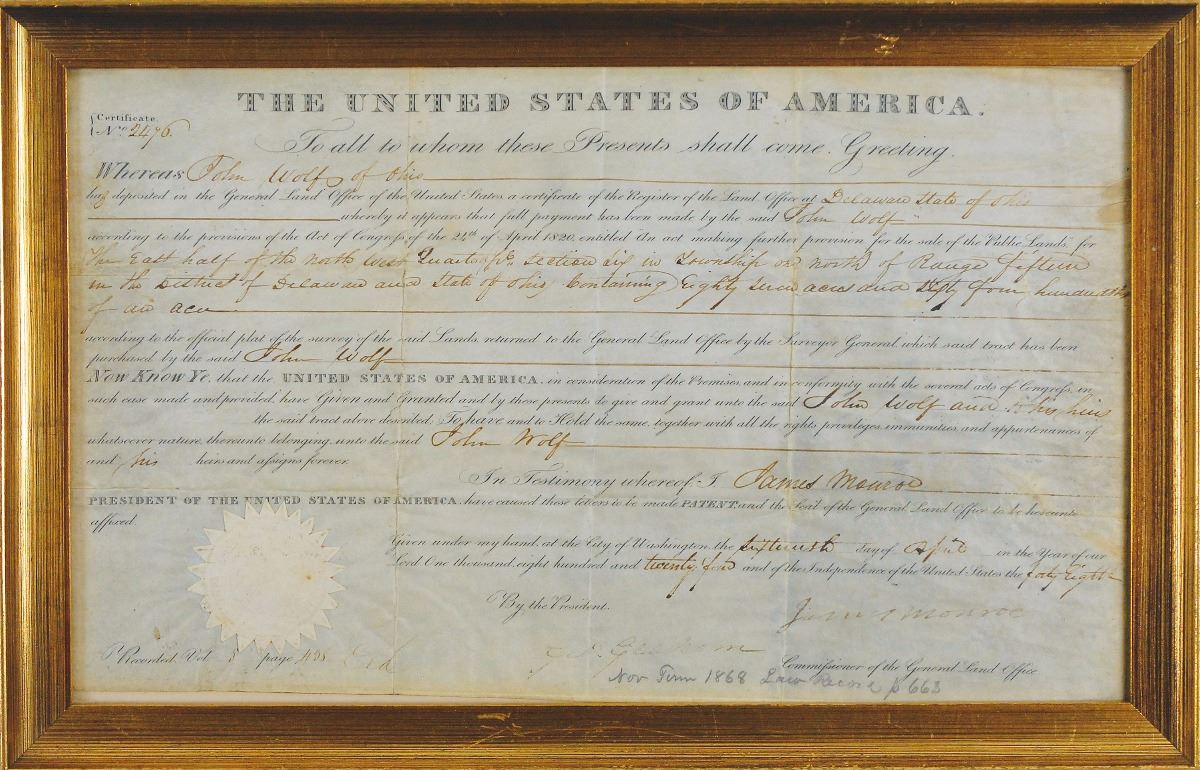 THE UNITED STATES OF AMERICA.
Certificate
No. 2476
To all to whom these Presents shall come, Greeting.
Whereas John Wolf of Ohio
has deposited in the General Land Office of the United States a certificate of the Register of the Land Office at Delaware State of Ohio
whereby it appears that full payment has been made by the said John Wolf
according to the provisions of the Act of Congress of the 24th of April 1820, entitled An act making further provision for the sale of the Public Lands, for
the East half of the north west Quarter of section six in Township one north of Range fifteen
in the District of Delaware and State of Ohio Containing Eighty seven acres and fifty four hundredths
of an acre
according to the official plat of the survey of the said Lands returned to the General Land Office by the Surveyor General, which said tract has been
purchased by the said John Wolf
Now Know Ye, that the UNITED STATES OF AMERICA, in consideration of the Premises, and in conformity with the several acts of Congress, in
such case made and provided, have Given and Granted and by these presents do give and grant unto the said John Wolf and to his heirs
the said tract above described. To have and to Hold the same, together with all the rights privileges, immunities and appurtenances of
whatsoever nature, thereunto belonging, unto the said John Wolf
and his heirs and assigns forever.
In Testimony whereof I James Monroe
PRESIDENT OF THE UNITED STATES OF AMERICA, have caused these letters to be made PATENT, and the Seal of the General Land Office to be hereunto
affixed.
Given under my hand, at the City of Washington, the day of April in the Year of our
Lord One thousand eight hundred and twenty four and of the Independence of the United States the forty Eighth
By the President. James Monroe
Recorded Vol. page
Commissioner of the General Land Office
Nov Term 1868 Law Record p 663